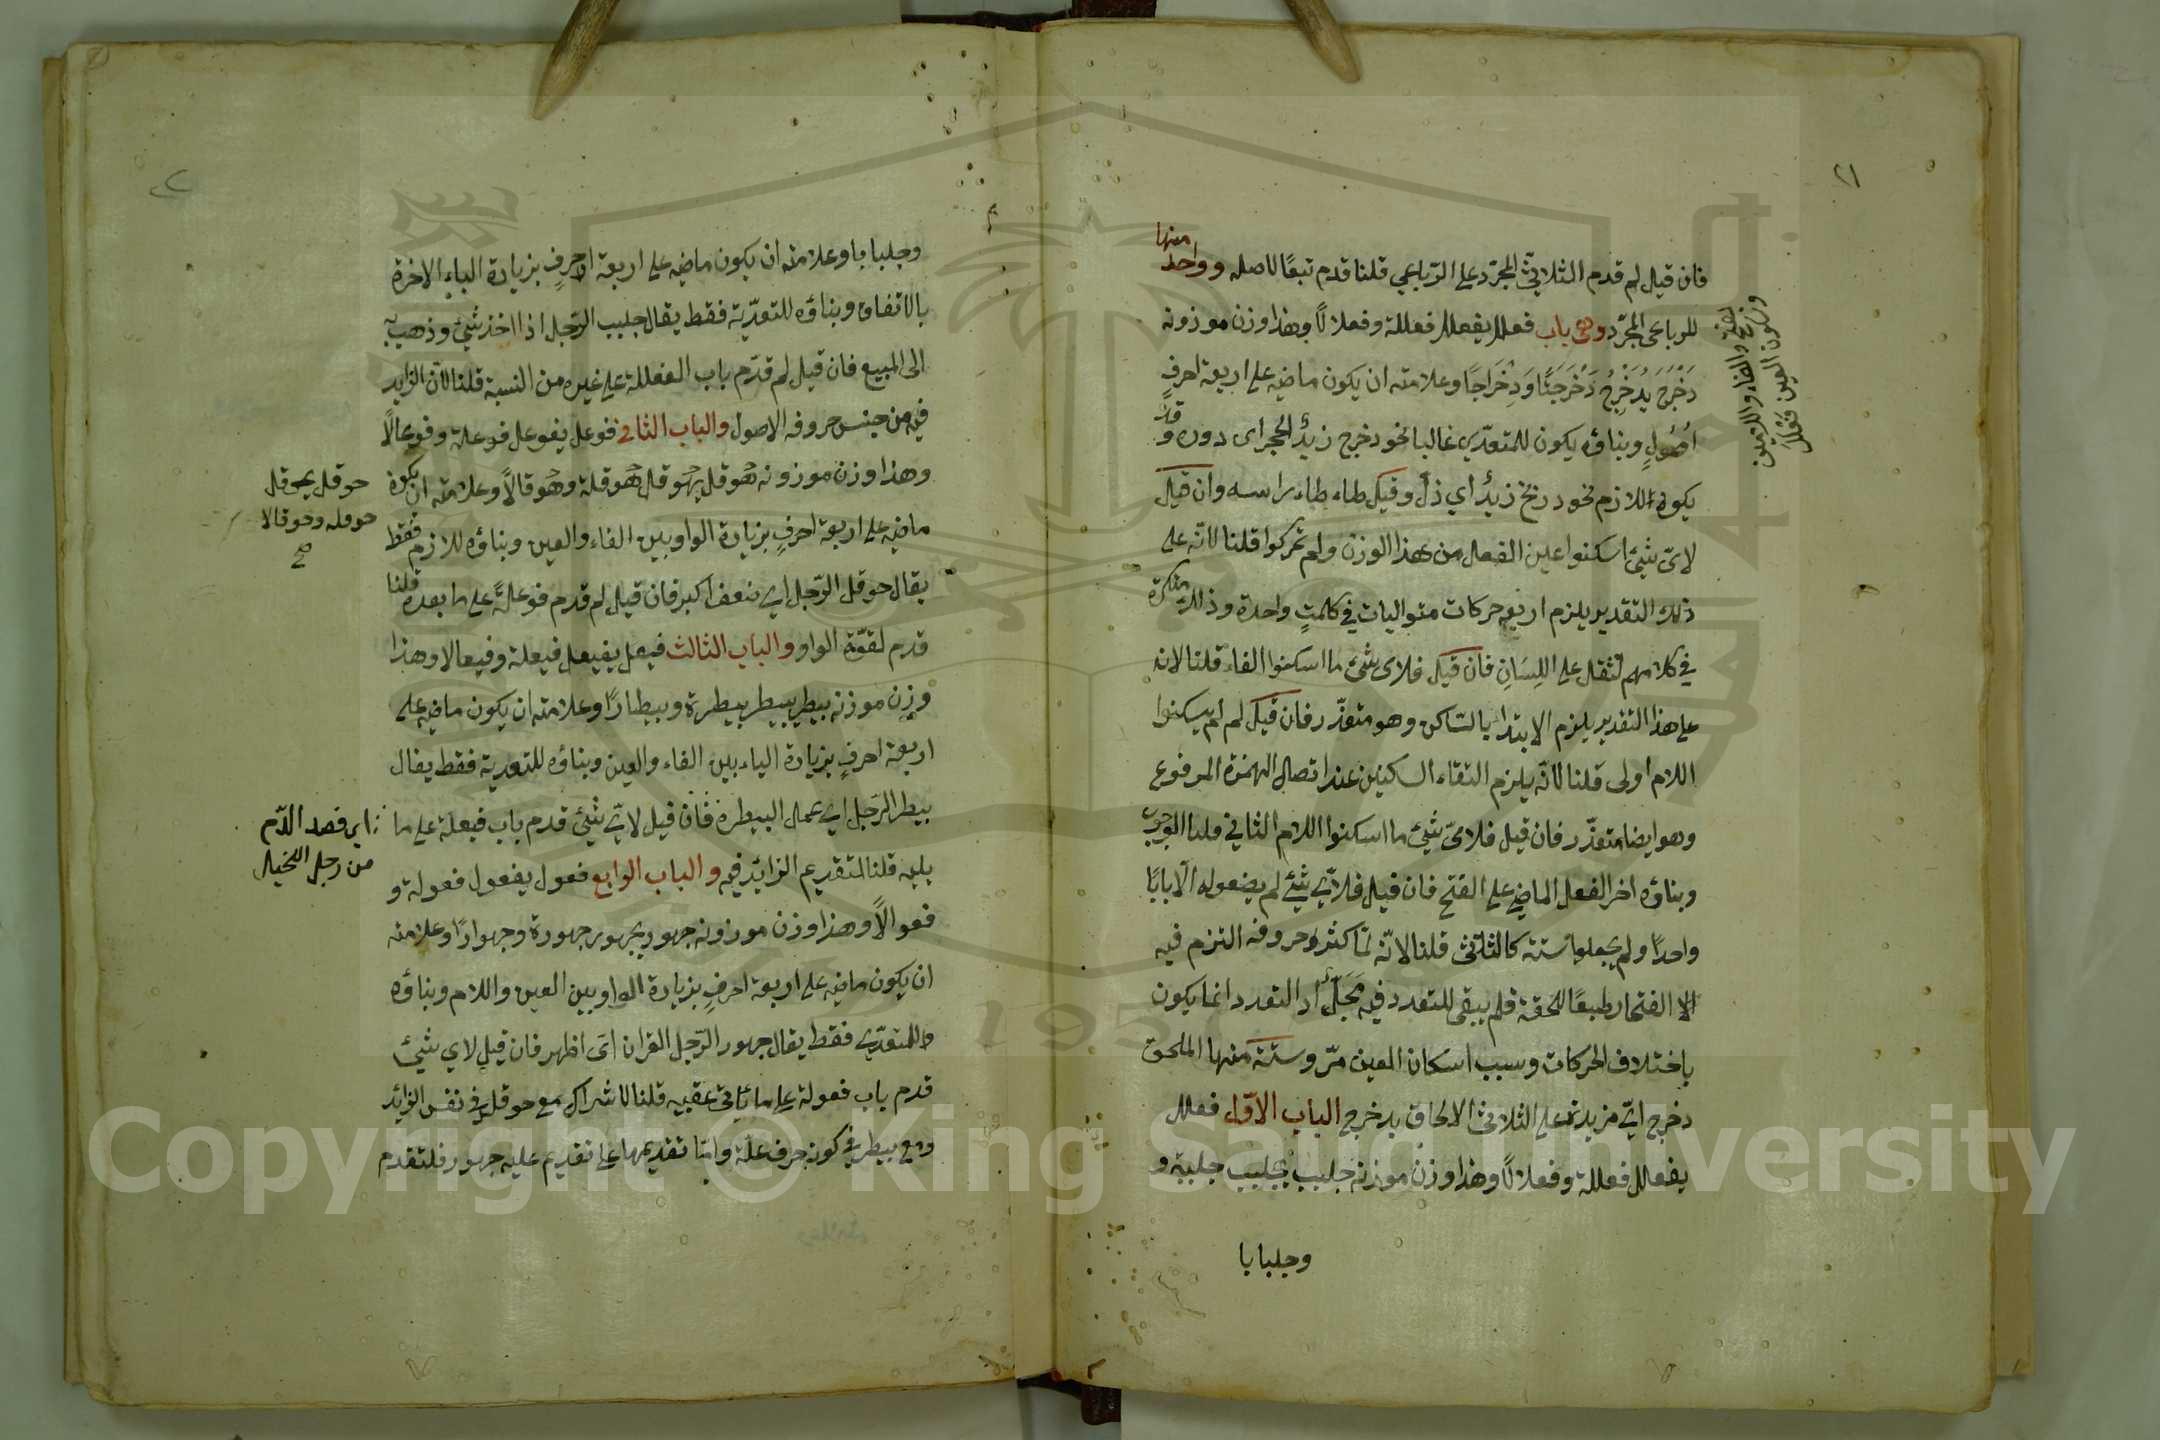 ٢١
منها
فان قيل لم قدم الثلاثي المجرّد على الرّباعي قلنا قدم تبعًا لاصله وواحد
للرباعى المجرّد وهى باب فعلل يفعلل فعللة وفعلالًا وهذا وزن موزونه
دَحْرَجَ يُدَحْرِجُ دَحْرَجَتًا وَدِحْرَاجًا وعلامته ان يكون ماضيه على اربعة احرفٍ
اُصُولٍ وبناؤه يكون للمتعدّي غالبا نحو دحرج زيدٌ الحجر اى دوره وقد
يكون اللازم نحو دربخ زيدٌ اي ذلّ وقيل طاء طاء راسه وان قيل
لاىّ شئ اسكنوا عين الفعل من هذا الوزن ولم تحركوا قلنا لانّه على
ذلك التقدير يلزم اربع حركات متواليات في كلمتٍ واحدة وذلك منكرة
في كلامهم لثقل على اللِسَانِ فان قيل فلاى شئ ما اسكنوا الفاء قلنا لانه
على هذا التقدير يلزم الابتدا بالسّاكن وهو متعذّر فان قيل لم لم يسكنوا
اللام اولى قلنا لانّه يلزم التقاء السكنين عند اتصال الهمزة المرفوع
وهو ايضا متعذّر فان قيل فلاىّ شئ ما اسكنوا اللام الثاني قلنا لوجوب
وبناؤه اخر الفعل الماضي على الفتح فان قيل فلاّي شئ لم يضعوله الّا بابًا
واحدًا ولم يجعلوا ستة كالثلاثى قلنا لانّه لمّا كثر حروفه التزم فيه
الا الفتحات طبعًا للخفة فلم يبقى للتعدد فيه مَحَلٌّ اذ التعدد انما يكون
باختلاف الحركات وسبب اسكان العين مرّ وستة منها الملحق
دحرج ايّ مزيدة على الثلاثى لالحاق بدحرج الباب الاوّل فعلل
يفعلل فعللة وفعلالًا وهذا وزن موزنه جلبب يجلبب جلببة و
وجلبابا
وجلبابا وعلامته ان يكون ماضيه على اربعة احرفٍ بزيادة الباء الاخرة
بالاتفاق وبناؤه للتعديّة فقط يقال جلبب الرّجل اذا اخذ شئ وذهب به
الى المبيع فان قيل لم قدّم باب الفعللة على غيره من النسبة قلنا لانّ الزايد
فيه من جنس حروفه الاصول والباب الثانى فوعل يفوعل فوعلة وفوعالًا
وهذا وزن موزونه حوقل يحوقل حوقلة وحوقالًا وعلامته ان يكون
ماضيه على اربعة احرفٍ بزيادة الواو بين الفاء والعين وبناؤه للازم فقط
يقال حوقل الرّجل اي ضعف اكبر فان قيل لم قدم فوعلةً على ما بعده قلنا
قدم لقوّة الواو والباب الثالث فيعل يفيعل فيعلة وفيعالا وهذا
وزن موزنه بيطر يبيطر بيطرة وبيطارًا وعلامته ان يكون ماضيه على
اربعة احرفٍ بزيادة الياء بين الفاء والعين وبناؤه للتعدية فقط يقال
بيطر الرّجل اي عمل البيطرة فان قيل لاىّ شئ قدم باب فيعلة على ما
يليه قلنا لتقديم الزايد فيه والباب الرابع فعول يفعول فعولة و
فعوالًا وهذا وزن موزونه جهور يجهور جهورة وجهوارًا وعلامته
ان يكون ماضيه على اربعة احرفٍ بزيادة الواو بين العين واللام وبناؤه
للمتعدّي فقط يقال جهور الرّجل القران اىَ اظهر فان قيل لاي شئ
قدم باب فعولة على ما يأتي عقبيه قلنا لاشتراك مع حوقل في نفس الزائد
ومع بيطر في كونه حرف علة وامّا تقديمها على تقديم عليه جهور فلتقدم
حوقل يحوقل
حوقلة وحوقالا
صح
اي فصد الدّم
من رجل الخيال
Copyright © King Saud University
1957